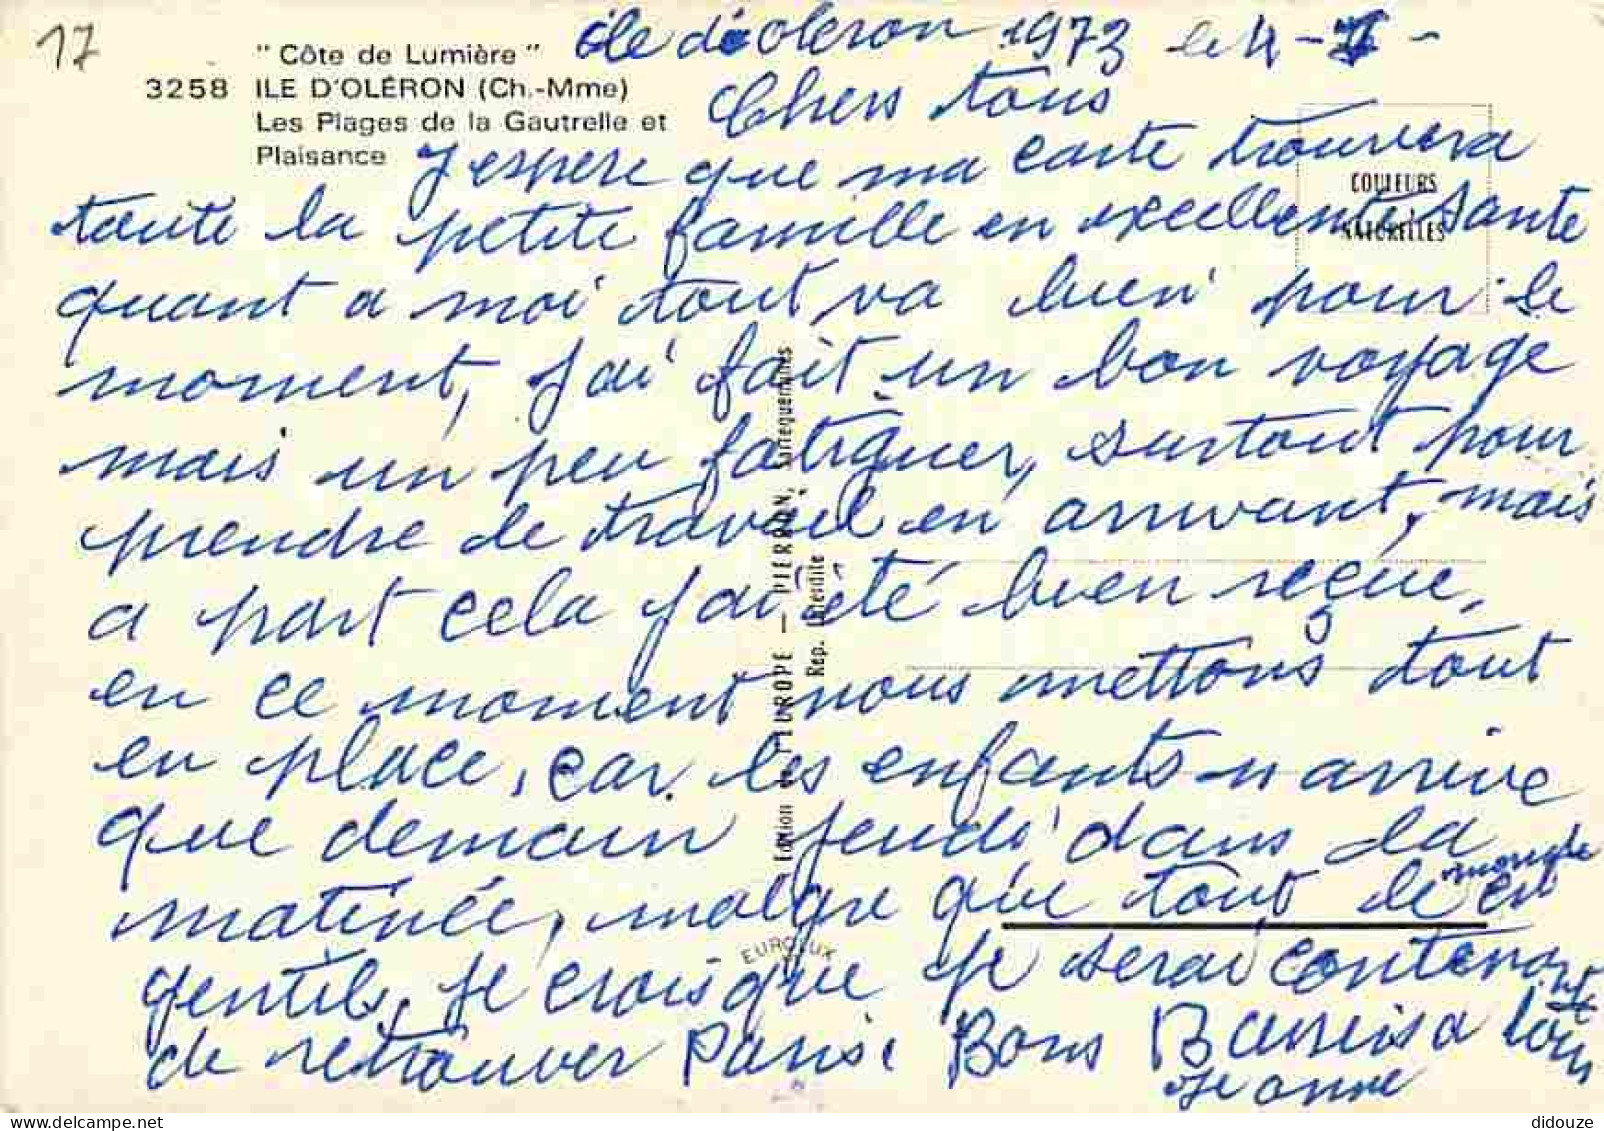 17
"Côte de Lumière"
3258 ILE D'OLÉRON (Ch.-Mme)
Les Plages de la Gautrelle et
Plaisance
ile d'oleron 1973 le 4 -
Chers tous
J'espere que ma carte trouvera
toute la petite famille en excellente sante
quant a moi tout va bien pour le
moment, j'ai fait un bon voyage
mais un peu fatiguer, surtout pour
prendre le travail en arrivant, mais
a part cela j'ai été bien reçue,
en ce moment nous mettons tout
en place, car les enfants n arrive
que demain jeudi dans la
matinée, malgre que tout le monde est
gentils, je crois que je serai contente
de retrouver Paris. Bons Baisers a tous
Jeanne
COULEURS
NATURELLES
Edition de l'EUROPE — PIERRON, Sarreguemines
Rep. Interdite
EUROLUX
didouze
delcampe.net